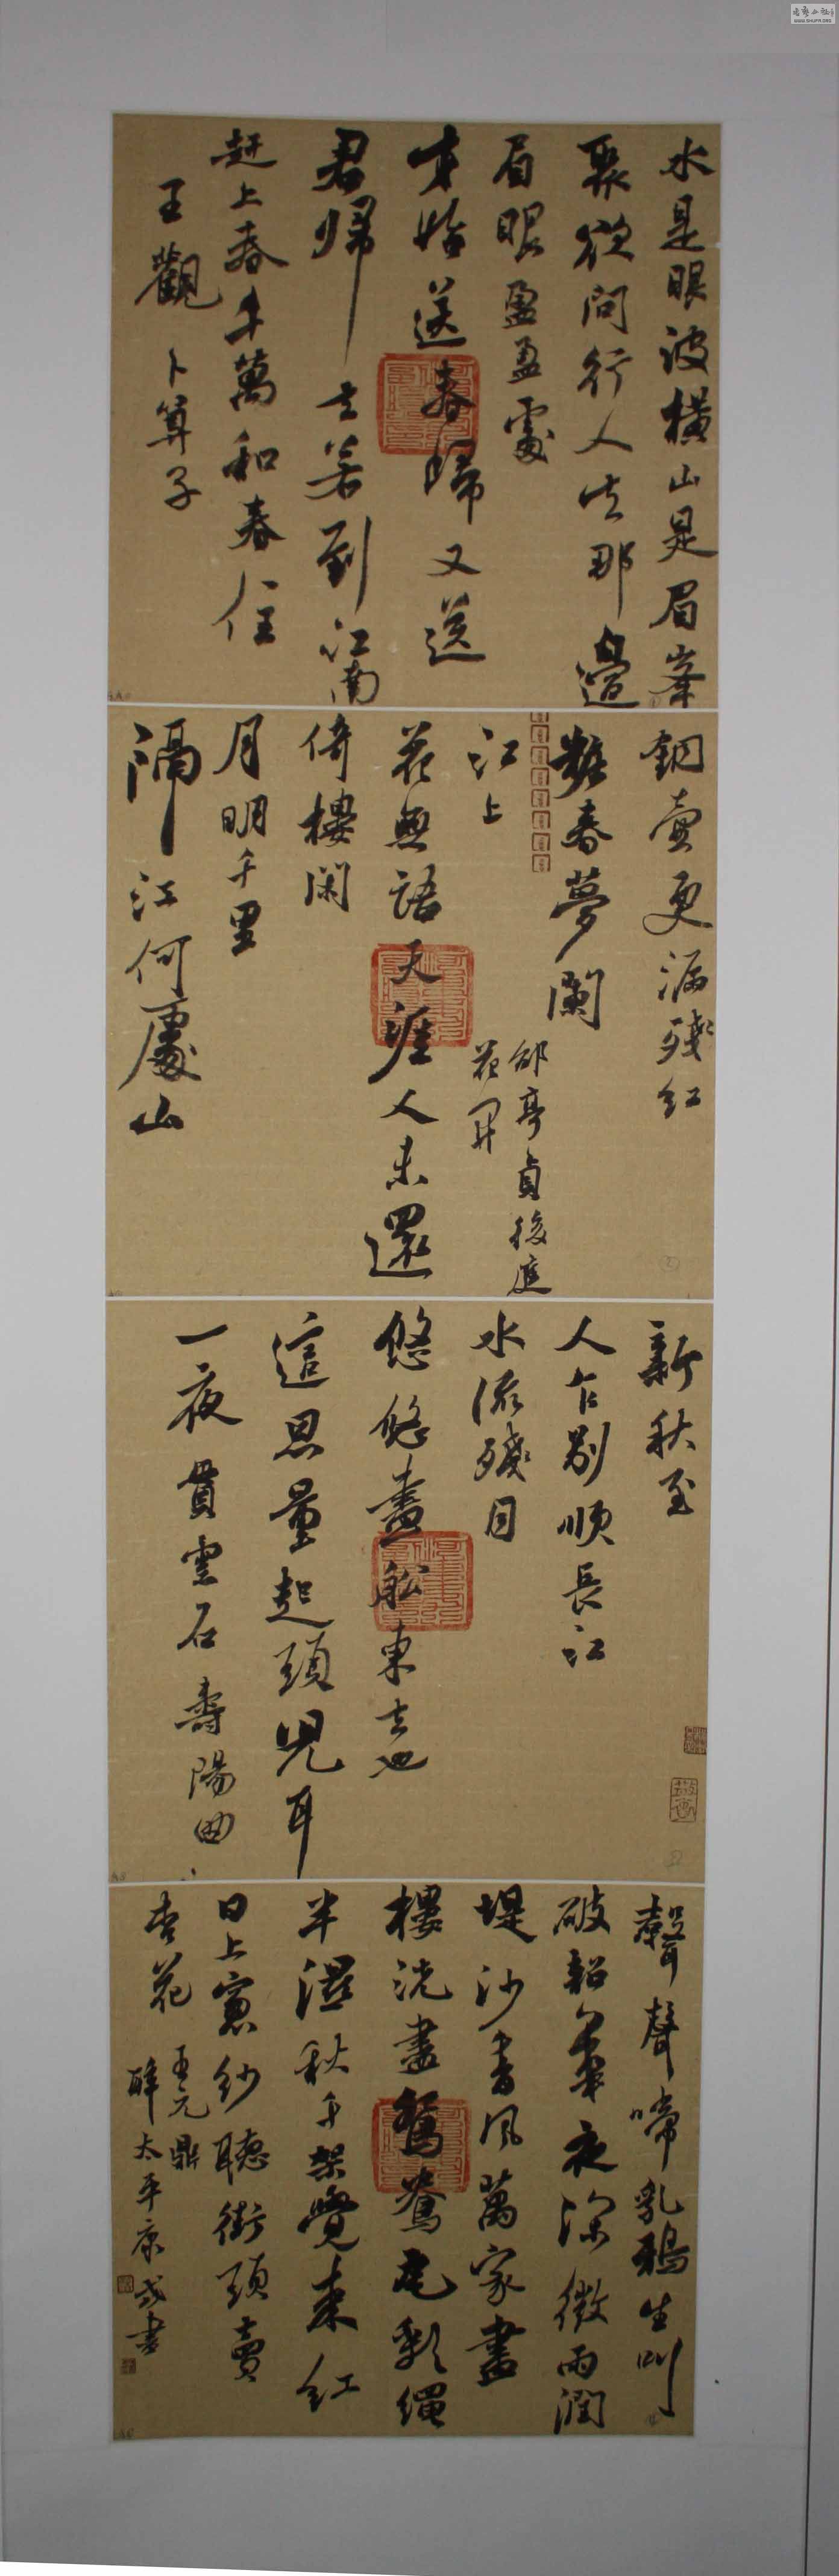 水是眼波橫山是眉峯
聚欲問行人去那邊
眉眼盈盈處
才始送春歸又送
君歸去若到江南
赶上春千萬和春住
王觀 卜算子
銅壺更漏殘紅
粧春夢闌
江上
花無語天涯人未還
倚樓閑
月明千里
隔江何處山
邵亨貞後庭
花
新秋至
人乍別順長江
水流殘月
悠悠畫船東去也
這思量起頭兒耳
一夜 貫雲石壽陽曲
聲聲啼乳鴉生叫
破韶華夜深微雨潤
堤沙香風萬家畫
樓洗盡鴛鴦瓦彩繩
半濕秋千架覺來紅
日上窗紗聽街頭賣
杏花 王元鼎
醉太平康戎書
WWW.SHUFA.ORG